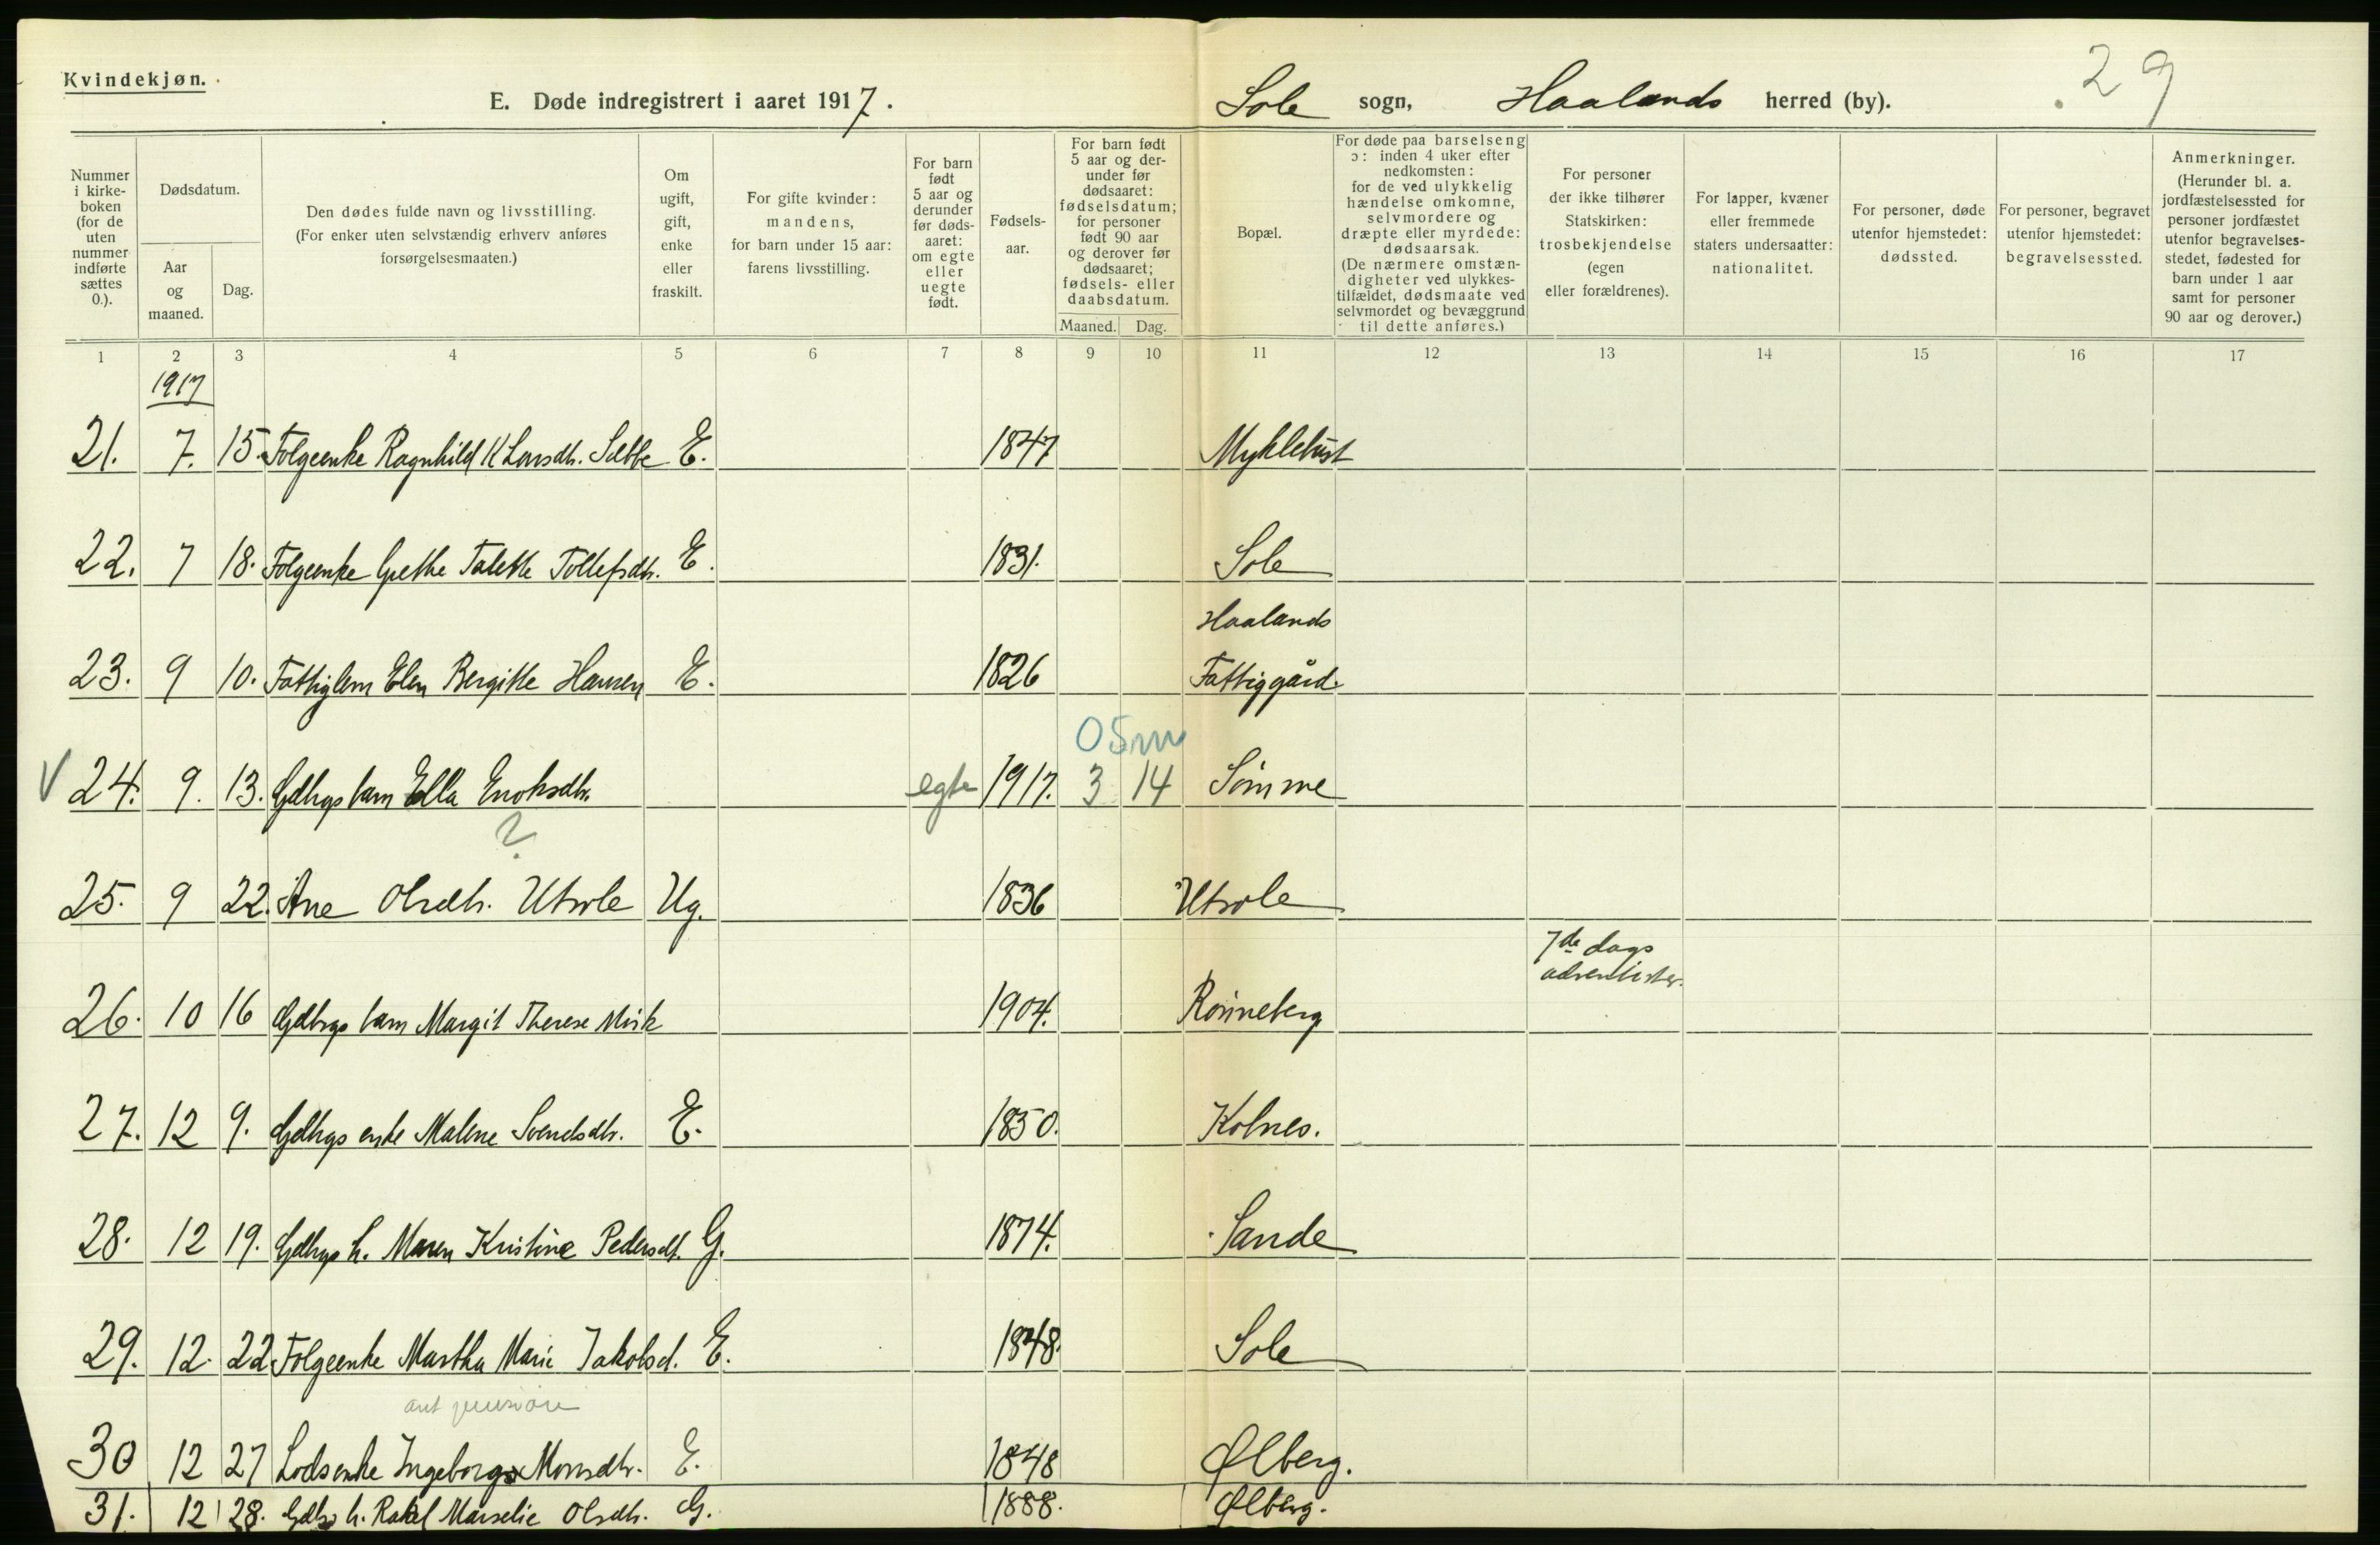 Kvindekjøn.
E. Døde indregistrert i aaret 1917.
Sole sogn, Haalands herred (by).
29
Nummer i kirke-boken (for de uten nummer indførte sættes 0.).
Dødsdatum.
Aar og maaned.
Dag.
Den dødes fulde navn og livsstilling.
(For enker uten selvstændig erhverv anføres forsørgelsesmaaten.)
Om ugift, gift, enke eller fraskilt.
For gifte kvinder: mandens, for barn under 15 aar: farens livsstilling.
For barn født 5 aar og derunder før døds-aaret: om egte eller uegte født.
Fødsels-aar.
For barn født 5 aar og der-under før dødsaaret: fødselsdatum; for personer født 90 aar og derover før dødsaaret; fødsels- eller daabsdatum.
Maaned. Dag.
Bopæl.
For døde paa barselseng ɔ: inden 4 uker efter nedkomsten: for de ved ulykkelig hændelse omkomne, selvmordere og dræpte eller myrdede: dødsaarsak.
(De nærmere omstæn-digheter ved ulykkes-tilfældet, dødsmaate ved selvmordet og bevæggrund til dette anføres.)
For personer der ikke tilhører Statskirken: trosbekjendelse (egen eller forældrenes).
For lapper, kvæner eller fremmede staters undersaatter: nationalitet.
For personer, døde utenfor hjemstedet: dødssted.
For personer, begravet utenfor hjemstedet: begravelsessted.
Anmerkninger.
(Herunder bl. a. jordfæstelsessted for personer jordfæstet utenfor begravelses-stedet, fødested for barn under 1 aar samt for personer 90 aar og derover.)
1 2 3 4 5 6 7 8 9 10 11 12 13 14 15 16 17
1917
21. 7. 15. Folgeenke Ragnhild K Larsdtr. Sæbbe E. 1847 Myklebust
22. 7 18. Folgeenke Grethe Talette Tollefsdtr. E. 1831. Sole
Haalands
23. 9 10. Fattiglem Elen Bergitte Hansen E. 1826 Fattiggård.
0 5m
V 24. 9. 13. Gdbrgs barn Ella Enoksdtr. egte 1917. 3 14 Sömme
?
25. 9 22. Ane Olsdtr. Utsole Ug. 1836 Utsole
7de dags
adventister.
26. 10 16 Gdbrgs barn Margit Therese 1904. Rönneberg
27. 12 9. Gdbrgs enke Malene Svendsdtr. E. 1850. Kolnes.
28. 12 19. Gdbrgs h. Maren Kristine Pedersdt. G. 1874. Sande
29. 12. 22 Folgeenke Martha Marie Jakobsd. E. 1848. Sole
30 12 27 Lodsenke Ingeborg Monsdtr. E. 1848 Ølberg.
31. 12 28. Gdbr h. Rakel Marselie Olsdtr. G. 1888. Ølberg.